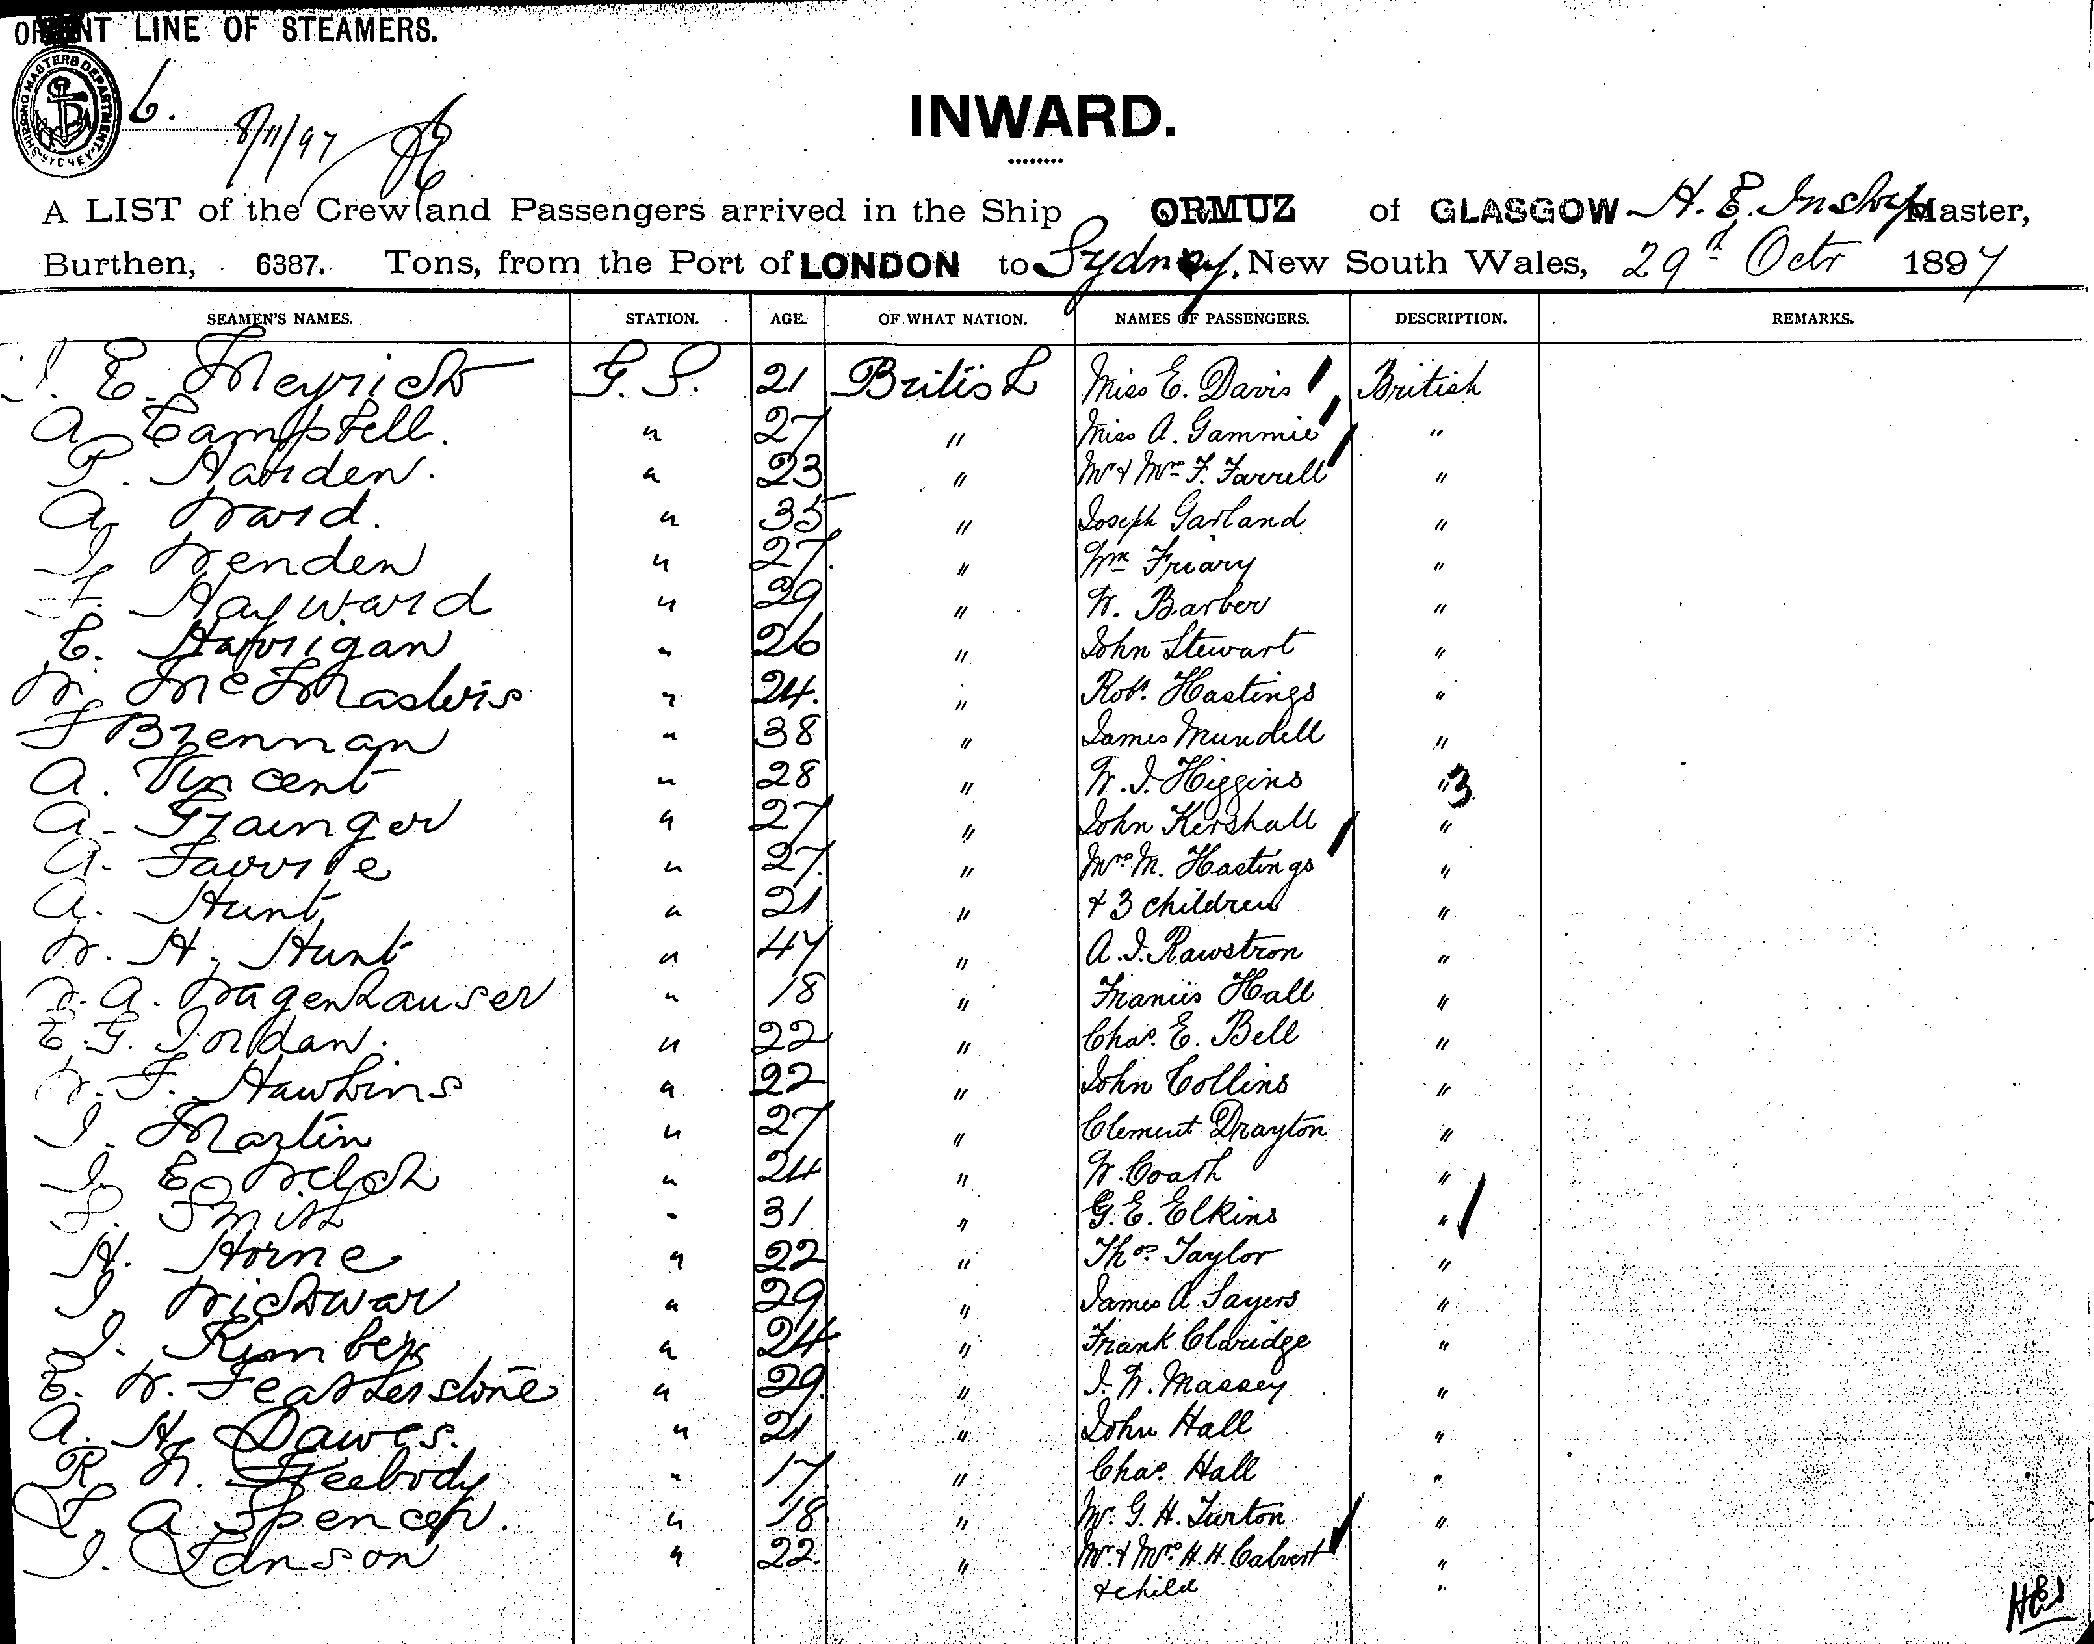 ORIENT LINE OF STEAMERS.
SHIPPING MASTERS DEPARTMENT SYDNEY
6.
8/11/97
INWARD.
A LIST of the Crew and Passengers arrived in the Ship ORMUZ of GLASGOW H. E. Inskip Master,
Burthen, 6387. Tons, from the Port of LONDON to Sydney, New South Wales, 29th Octr 1897
SEAMEN'S NAMES. STATION. AGE. OF WHAT NATION. NAMES OF PASSENGERS. DESCRIPTION. REMARKS.
J. E. Meyrick G. S. 21 British Miss E. Davis British
A Campbell. " 27 " Miss A. Gammie "
P. Harden. " 23 " Mr & Mrs F. Farrell "
A. Ward. " 35 " Joseph Garland "
J. Wenden " 27. " Wm Friary "
F. Hayward " 29 " W. Barber "
C. Harrigan " 26 " John Stewart "
W. McMasters " 24. " Robt. Hastings "
F Brennan " 38 " James Mundell "
A. Vincent " 28 " W. J. Higgins " 3
A. Grainger " 27 " John Kershall "
A. " 27. " Mrs M. Hastings "
A. Hunt " 21 " & 3 children "
W. H. Hunt " 47 " A. J. Rawstron "
W. A. Wagenhauser " 18 " Francis Hall "
E. G. Jordan. " 22 " Chas. E. Bell "
W. F. Hawkins " 22 " John Collins "
J. Martin " 27 " Clement Drayton "
J. E. Welch " 24 " W. Coath "
S. Smith " 31 " G. E. Elkins "
H. Horne " 22 " Thos. Taylor "
J. Wickwar " 29 " James A Sayers "
J. Kimber " 24 " Frank Claridge "
E. W. Featherstone " 29. " J. W. Massey "
A. H. Dawes. " 21 " John Hall "
R. W. Peebody " 17 " Chas. Hall "
F. A Spencer. " 18 " Mr. G. H. Turton "
J. Lanson " 22. " Mr & Mrs H. H. Calvert "
& child "
HEI